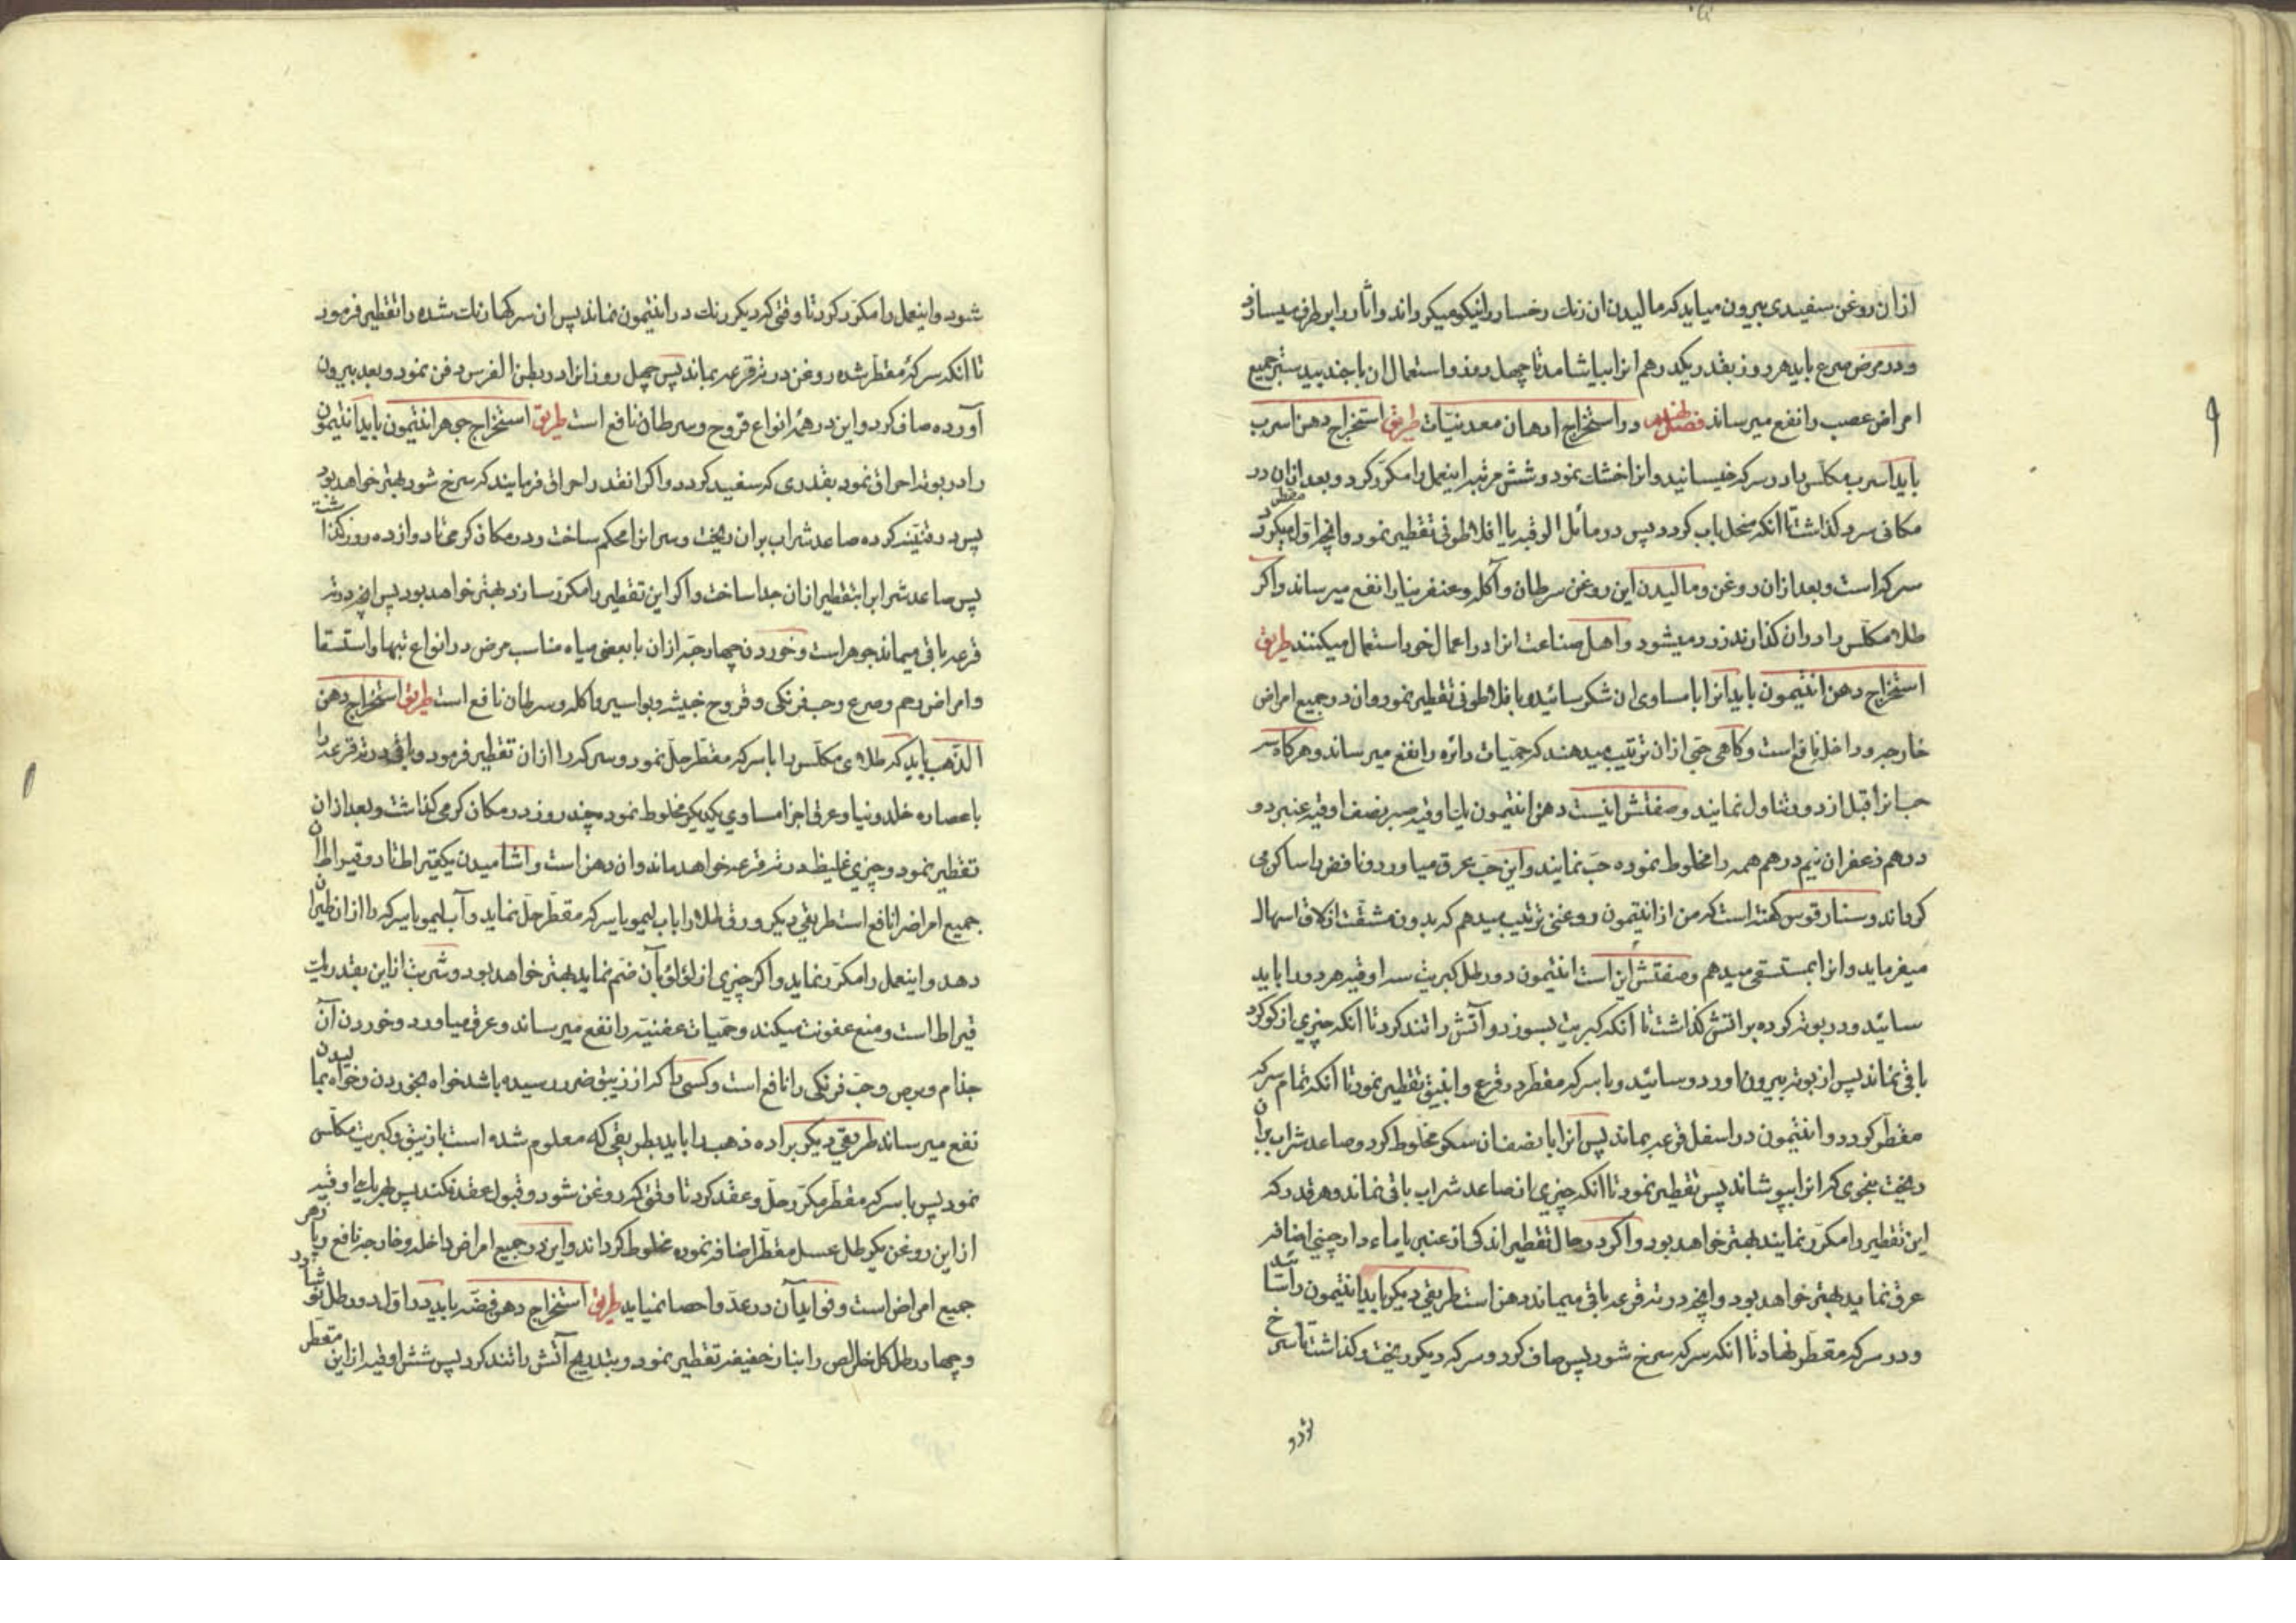 ازان روغن سفیدی بیرون میاید که مالیدن ان رنك رخسار را نیکو میکرداند واثار را برطرف میسازد
ودر مرض صرع باید هر روز بقدر یکدرهم انرا بیاشامد تا چهل روز واستعمال ان با جندبیدستر جمیع
امراض عصب را نفع میرساند فصل در استخراج ادهان معدنیّات طریق استخراج دهن اسرب
باید اسرب مکلّس را در سرکه خیسانید وانرا خشك نمود وشش مرتبه اینعمل را مکرّر کرد وبعد ازان در
مکانی سرد کذاشت تا انکه منحل باب کردد پس در مائل الرقبه یا افلاطونی تقطیر نمود وانچه اوّل میکردد مقطر
سرکه است وبعد ازان روغن ومالیدن این روغن سرطان وآکله وعنفرینا را نفع میرساند واکر
طلاء مکلّس را دران کذارند زرد میشود واهل صناعت انرا در اعمال خود استعمال میکنند طریق
استخراج دهن انتیمون باید انرا با مساوی ان شکر سائیده با فلاطونی تقطیر نمود وان در جمیع امراض
خارجه وداخله نافع است وکاهی حبّی ازان ترتیب میدهند که حمیّات دائره را نفع میرساند وهرکاه سه
حب انرا قبل از دور تناول نمایند وصفتش اینست دهن انتیمون یك اوقیه صبر نصف اوقیه عنبر دو
درهم زعفران نیم درهم همه را مخلوط نموده حبّ نمایند واین حبّ عرق میاورد ونافض را ساکن می
کرداند وسنارقوس کفته است که من از انتیمون روغنی ترتیب میدهم که بدون مشقّت ازلاق اسهال
میفرماید وانرا بمستسقی میدهم وصفتش این است انتیمون دو رطل کبریت سه اوقیه هر دو را باید
سائید ودر بوته کرده براتش کذاشت تا انکه کبریت بسوزد وآتش را تند کرد تا انکه چیزی از کوکرد
باقی نماند پس از بوته بیرون اورد وسائید وبا سرکه مقطّر در قرع وانبیق تقطیر نمود تا انکه تمام سرکه
مقطّر کردد وانتیمون در اسفل قرعه بماند پس انرا با نصف ان سکّر مخلوط کرد وصاعد شراب بران
ریخت بنحوی که انرا بپوشاند پس تقطیر نمود تا انکه چیزی از صاعد شراب باقی نماند وهر قدر که
این تقطیر را مکرّر نمایند بهتر خواهد بود واکر در حال تقطیر اندکی از عنبر یا ماء دارچینی اضافه
عرق نماید بهتر خواهد بود وانچه در ته قرعه باقی میماند دهن است طریقی دیکر باید انتیمون را سائید
ودر سرکه مقطّر نهاد تا انکه سرکه سرخ شود پس صاف کرد وسرکه دیکر ریخت وکذاشت تا سرخ
شود واینعمل را مکرّر کرد تا وقتی که دیکر رنك در انتیمون نماند پس ان سرکهای رنك شده را تقطیر فرمود
تا انکه سرکهٔ مقطّر شده روغن در ته قرعه بماند پس چهل روز انرا در بطن الفرس دفن نمود وبعد بیرون
آورده صاف کرد واین در همهٔ انواع قروح وسرطان نافع است طریق استخراج جوهر انتیمون باید انتیمون
را در بوته احراق نمود بقدری که سفید کردد واکر انقدر احراق فرمایند که سرخ شود بهتر خواهد بود
پس در قنّینه کرده صاعد شراب بران ریخت وسر انرا محکم ساخت ودر مکان کرمی تا دوازده روز کذاشت
پس صاعد شراب را بتقطیر ازان جدا ساخت واکر این تقطیر را مکرّر سازد بهتر خواهد بود پس انچه در ته
قرعه باقی میماند جوهر است وخوردن چهار حبّه ازان با بعضی میاه مناسب مرض در انواع تبها واستسقا
وامراض رحم وصرع وحب فرنکی وقروح خبیثه وبواسیر واکله وسرطان نافع است طریق استخراج دهن
الذّهب باید که طلای مکلّس را با سرکه مقطّر حلّ نمود وسرکه را ازان تقطیر فرمود وباقی در ته قرعه را
با عصاره خلدونیا وعرق اجزا مساوی یکدیکر مخلوط نمود چند روز در مکان کرمی کذاشت وبعد ازان
تقطیر نمود وچیزی غلیظ در ته قرعه خواهد ماند وان دهن است واشامیدن یکقیراط تا دو قیراط ان
جمیع امراض را نافع است طریقی دیکر ورق طلا را باب لیمو یا سرکه مقطّر حلّ نماید وآب لیمو یا سرکه را ازان طیران
دهد واینعمل را مکرّر نماید واکر چیزی از لؤلؤ بآن ضمّ نماید بهتر خواهد بود وشربت ازاین بقدر یك
قیراط است ومنع عفونت میکند وحمیّات عفنیّه را نفع میرساند وعرق میاورد وخوردن آن
جذام وبرص وحبّ فرنکی را نافع است وکسی را که از زیبق ضرر رسیده باشد خواه بخوردن وخواه بمالیدن
نفع میرساند طریقی دیکر براده ذهب را باید بطریقی که معلوم شده است با زیبق وکبریت مکلّس
نمود پس با سرکه مقطّر مکرّر حلّ وعقد کرد تا وقتی که روغن شود وقبول عقد نکند پس بهر یك اوقیه
از این روغن یکرطل عسل مقطّر اضافه نموده مخلوط کرداند واین در جمیع امراض داخله وخارجه نافع وپادزهر
جمیع امراض است وفواید آن در عدّ واحصا نمیاید طریق استخراج دهن فضّه باید در اوّل دو رطل نوشادر
وچهار رطل کل خالص را بنار خفیفه تقطیر نمود وبتدریج آتش را تند کرد پس شش اوقیه از این مقطّر